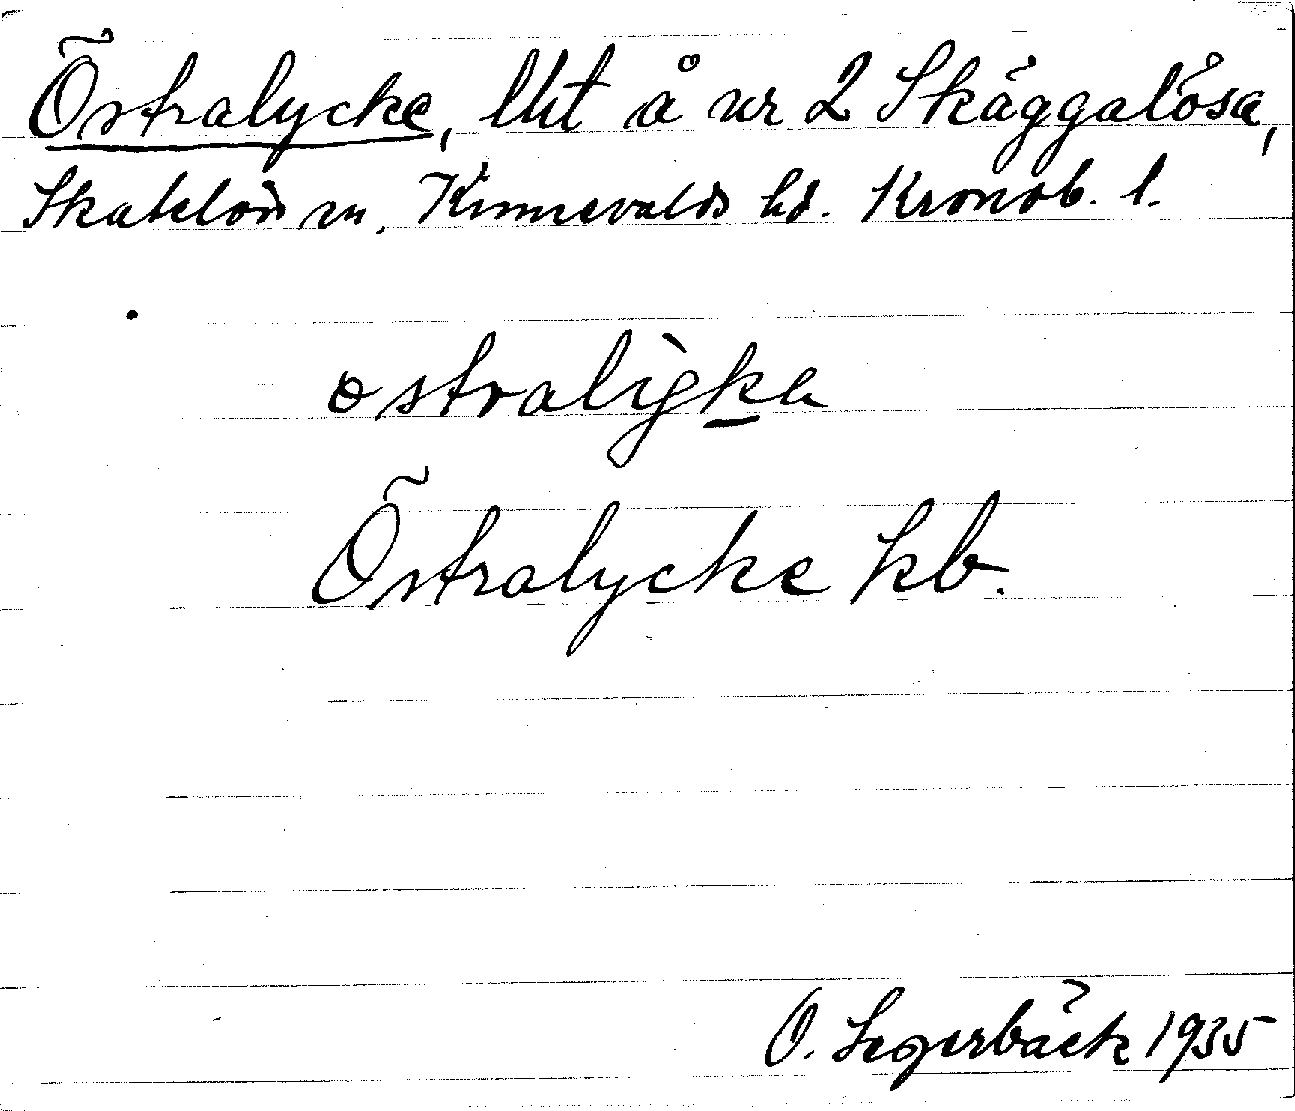 Östralycke, lht å nr 2 Skäggalösa,
Skatelövs sn, Kinnevalds hd. Kronob. l.
östralỳka
Östralycke kb.
O. Segerbäck 1935